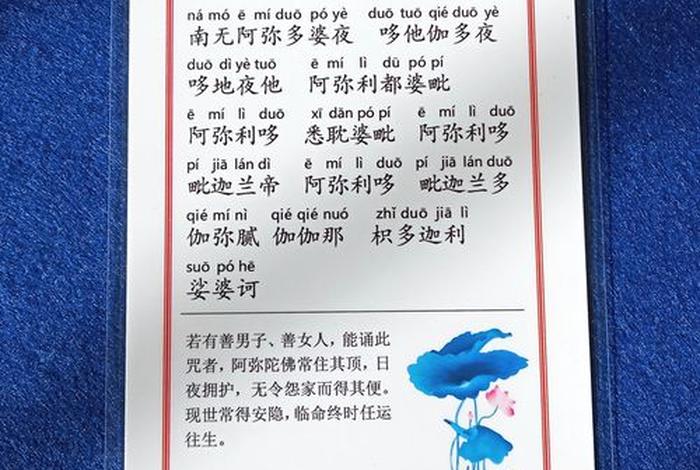 ná mó ē mí duō pó yè duō tuō qié duō yè
南无阿弥多婆夜 哆他伽多夜
duō dì yè tuō ē mí lì dū pó pí
哆地夜他 阿弥利都婆毗
ē mí lì duō xī dān pó pí ē mí lì duō
阿弥利哆 悉耽婆毗 阿弥利哆
pí jiā lán dì ē mí lì duō pí jiā lán duō
毗迦兰帝 阿弥利哆 毗迦兰多
qié mí nì qié qié nuó zhǐ duō jiā lì
伽弥腻 伽伽那 枳多迦利
suō pó hē
娑婆诃
若有善男子、善女人，能诵此
咒者，阿弥陀佛常住其顶，日
夜拥护，无令怨家而得其便。
现世常得安隐，临命终时任运
往生。